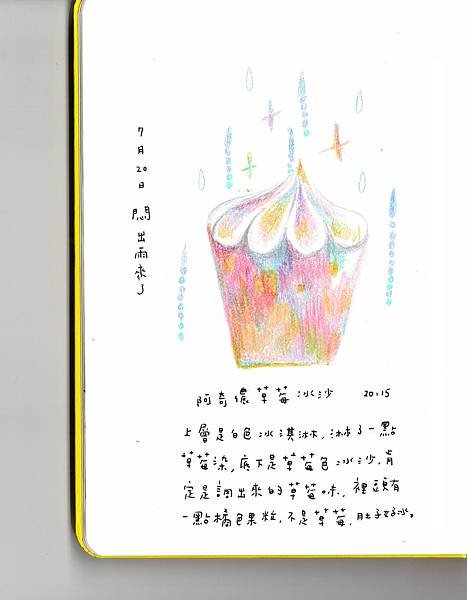 7月20日 悶出雨來了
阿奇儂草莓冰沙 20:15
上層是白色冰淇淋,淋了一點
草莓染,底下是草莓色冰沙,肯
定是調出來的草莓味,裡頭有
一點橘色果粒,不是草莓,肚子好冰。